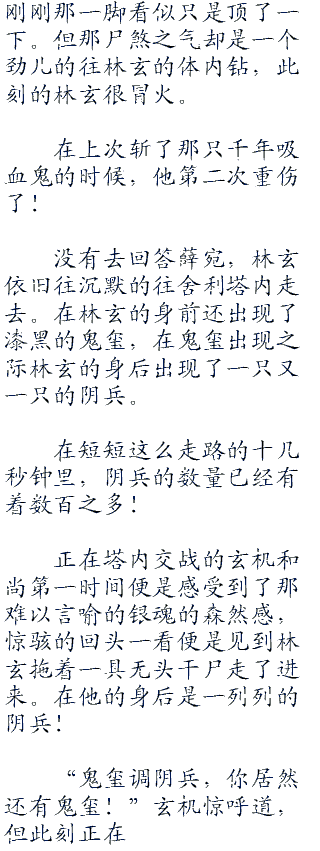 刚刚那一脚看似只是顶了一
下。但那尸煞之气却是一个
劲儿的往林玄的体内钻，此
刻的林玄很冒火。
在上次斩了那只千年吸
血鬼的时候，他第二次重伤
了！
没有去回答薛宛，林玄
依旧往沉默的往舍利塔内走
去。在林玄的身前还出现了
漆黑的鬼玺，在鬼玺出现之
际林玄的身后出现了一只又
一只的阴兵。
在短短这么走路的十几
秒钟里，阴兵的数量已经有
着数百之多！
正在塔内交战的玄机和
尚第一时间便是感受到了那
难以言喻的银魂的森然感，
惊骇的回头一看便是见到林
玄拖着一具无头干尸走了进
来。在他的身后是一列列的
阴兵！
“鬼玺调阴兵，你居然
还有鬼玺！”玄机惊呼道，
但此刻正在